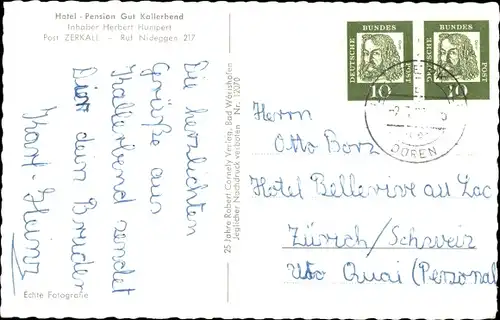 Hotel - Pension Gut Kallerbend
Inhaber Herbert Humpert
Post ZERKALL - Ruf Nideggen 217
Die herzlichsten
Grüße aus
Kallerbend sendet
Dir dein Bruder
Karl-Heinz
Echte Fotografie
25 Jahre Robert Cornely Verlag, Bad Wörishofen
Jeglicher Nachdruck verboten Nr. 12070
DEUTSCHE BUNDESPOST
10
DEUTSCHE BUNDESPOST
10
DÜREN
Herrn
Otto Borz
Hotel Bellerive au Lac
Zürich/Schweiz
Uto Quai (Personal